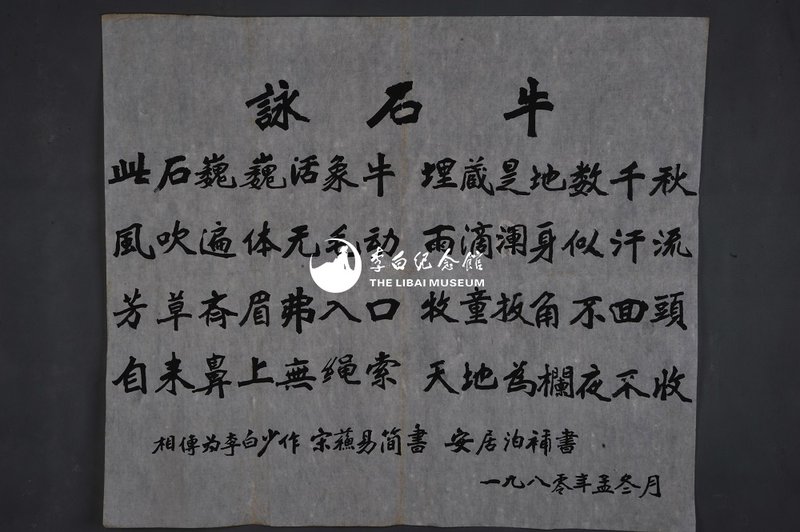 詠石牛
此石巍巍活象牛 埋蔵是地数千秋
風吹遍体无毛动 雨滴渾身似汗流
芳草斉眉弗入口 牧童扳角不回頭
自来鼻上無绳索 天地為欄夜不收
相傳为李白少作 宗蘓易简書 安居泊補書
一九八零年孟冬月
李白纪念館
THE LIBAI MUSEUM